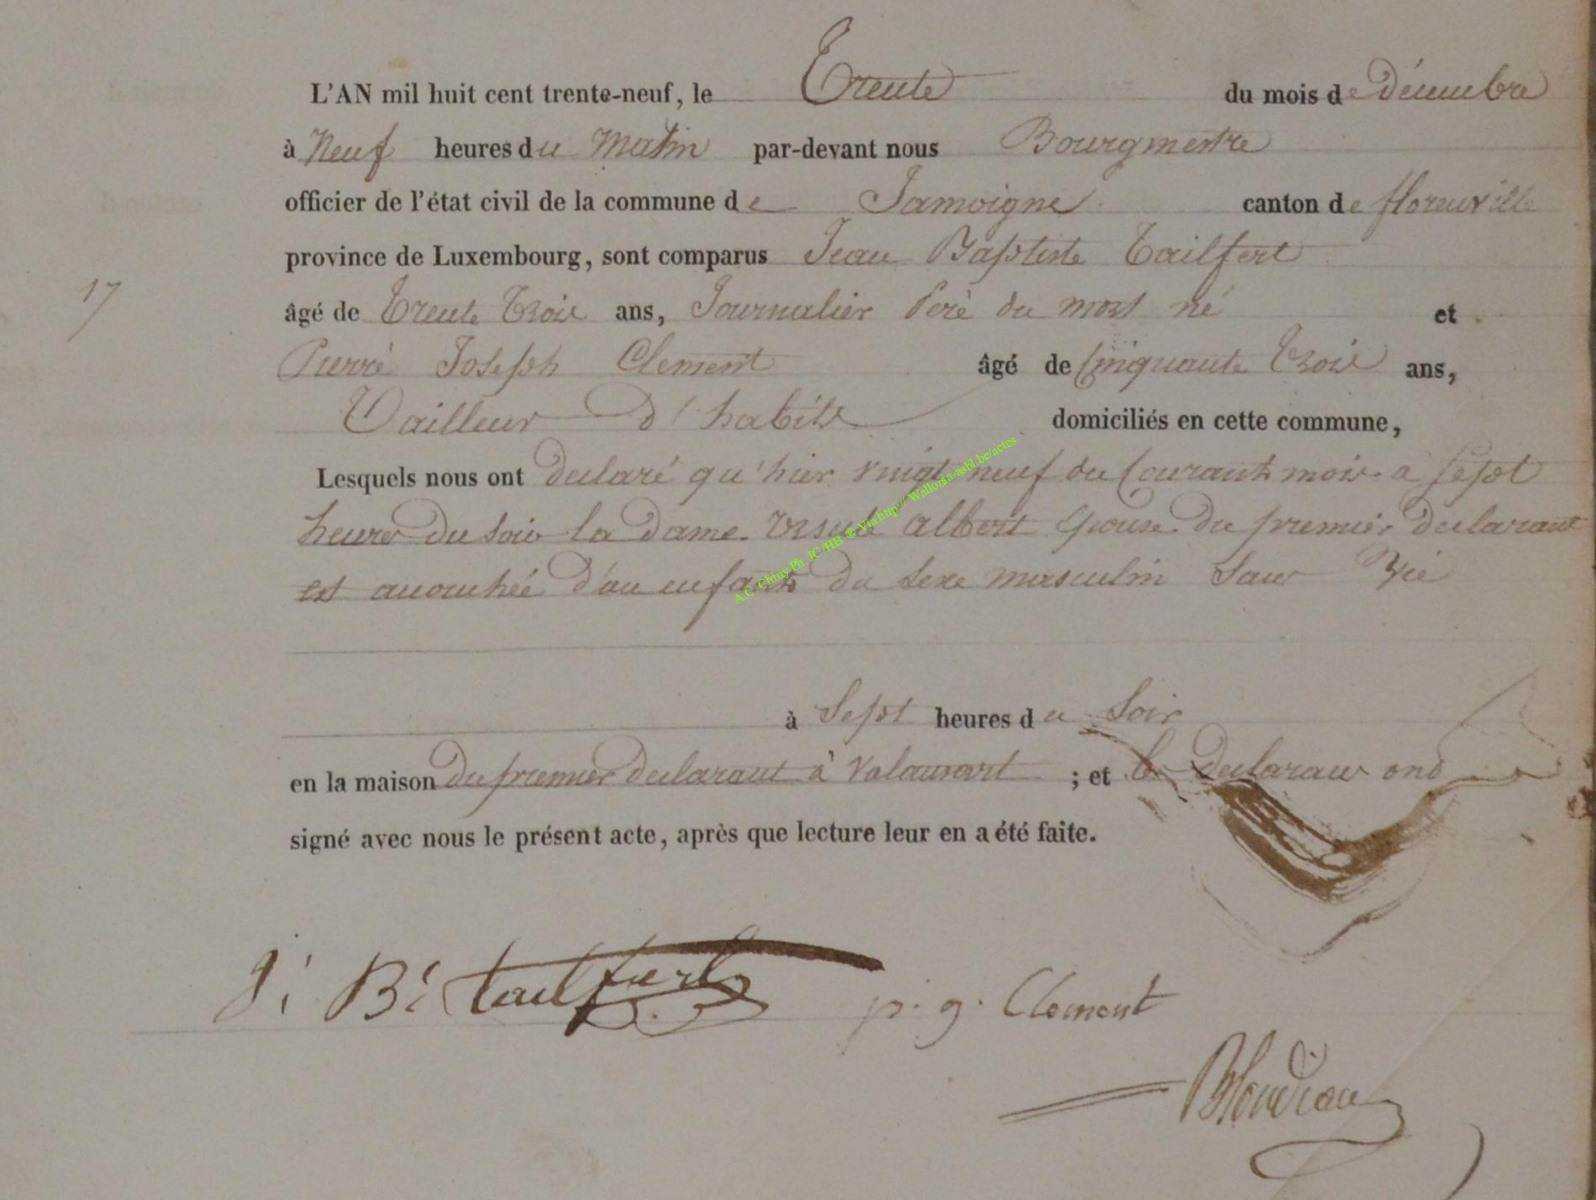 L'AN mil huit cent trente-neuf, le Trente du mois de décembre
à Neuf heures du Matin par-devant nous Bourgmestre
officier de l'état civil de la commune de Jamoigne canton de florenville
province de Luxembourg, sont comparus Jean Baptiste Tailfert
17
âgé de Trente Trois ans, Journalier Peré du mort né et
Pierre Joseph Clement âgé de Cinquante Trois ans,
Tailleur D'habits domiciliés en cette commune,
Lesquels nous ont declaré qu'hier vingt neuf du Courant mois a Sept
heures du Soir la dame Ursule Albert Epouse du premier declarant
est accouchée d'un enfant du sexe masculin Sans Vie
à Sept heures du Soir
en la maison du premier declarant à Valansart ; et les declarans ond
signé avec nous le présent acte, après que lecture leur en a été faite.
J. Bt tailfert p. g. Clement
A.C. Chiny Ph. JC HB & V.